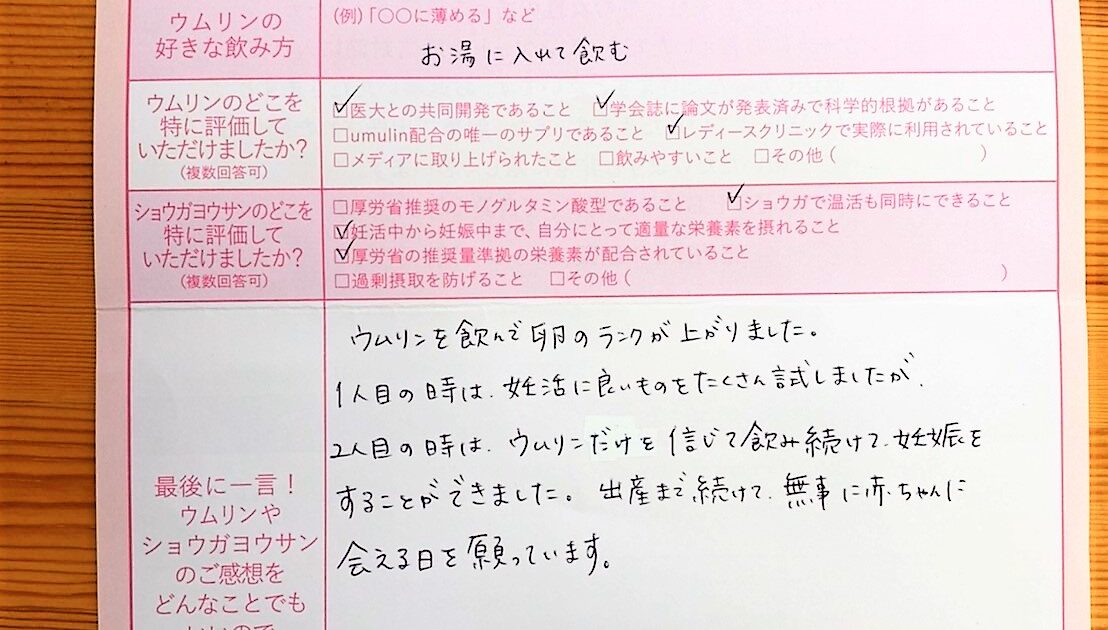 ウムリンの
好きな飲み方
(例)「〇〇に薄める」など
お湯に入れて飲む
ウムリンのどこを
特に評価して
いただけましたか?
(複数回答可)
☑医大との共同開発であること ☑学会誌に論文が発表済みで科学的根拠があること
□umulin配合の唯一のサプリであること ☑レディースクリニックで実際に利用されていること
□メディアに取り上げられたこと □飲みやすいこと □その他( )
ショウガヨウサンのどこを
特に評価して
いただけましたか?
(複数回答可)
□厚労省推奨のモノグルタミン酸型であること ☑ショウガで温活も同時にできること
☑妊活中から妊娠中まで、自分にとって適量な栄養素を摂れること
☑厚労省の推奨量準拠の栄養素が配合されていること
□過剰摂取を防げること □その他( )
最後に一言!
ウムリンや
ショウガヨウサン
のご感想を
どんなことでも
いいので
ウムリンを飲んで卵のランクが上がりました。
1人目の時は、妊活に良いものをたくさん試しましたが、
2人目の時は、ウムリンだけを信じて飲み続けて、妊娠を
することができました。出産まで続けて、無事に赤ちゃんに
会える日を願っています。